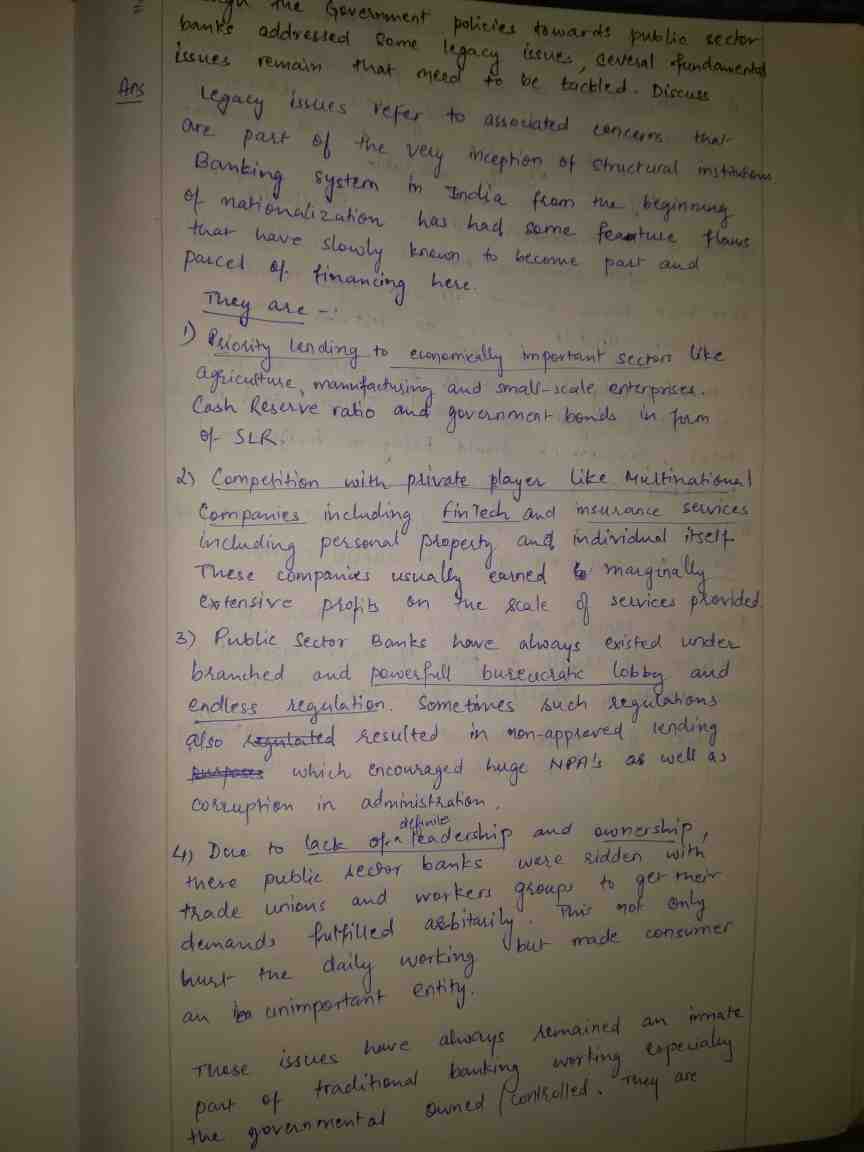 the Government policies towards public sector
banks addressed some legacy issues, several fundamental
issues remain that need to be tackled. Discuss
Ans Legacy issues refer to associated concerns that
are part of the very inception of structural institutions
Banking system in India from the beginning
of nationalization has had some feature flaws
that have slowly known to become part and
parcel of financing here.
They are -:
1) Priority lending to economically important sectors like
agriculture, manufacturing and small-scale enterprises.
Cash Reserve ratio and government bonds in form
of SLR.
2) Competition with private player like Multinational
Companies including FinTech and insurance services
including personal property and individual itself
These companies usually earned marginally
extensive profits on the scale of services provided.
3) Public Sector Banks have always existed under
branched and powerfull bureacratic lobby and
endless regulation. Sometimes such regulations
also regulated resulted in non-approved lending
purposes which encouraged huge NPA's as well as
corruption in administration.
4) Due to lack of a definite leadership and ownership,
these public sector banks were ridden with
trade unions and workers groups to get their
demands fulfilled arbitarily. This not only
hurt the daily working but made consumer
an unimportant entity.
These issues have always remained an innate
part of traditional banking working especially
the governmental owned / controlled. They are